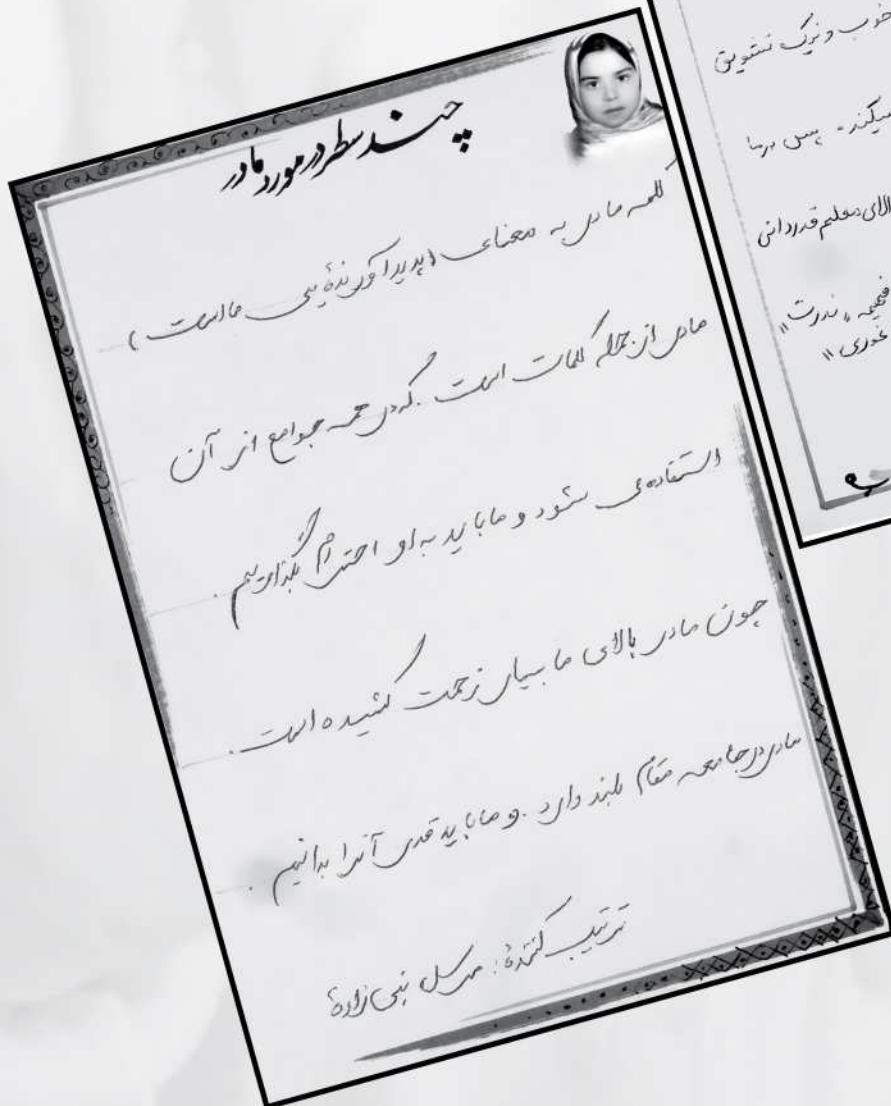 چند سطر در مورد مادر
کلمه مادر به معنای (پدید آورنده یی ما است)
مادر از جمله کلمات است. که در همه جوامع از آن
استفاده می شود و ما باید به او احترام بگذاریم.
چون مادر بالای ما بسیار زحمت کشیده است.
مادر در جامعه مقام بلند دارد. و ما باید قدر آنرا بدانیم.
ترتیب کننده: مرسل نبی زاده
خوب و نیک تشویق
میکند. پس بر ما
بالای معلم قدردانی
فهیمه "ندرت"
غوری"